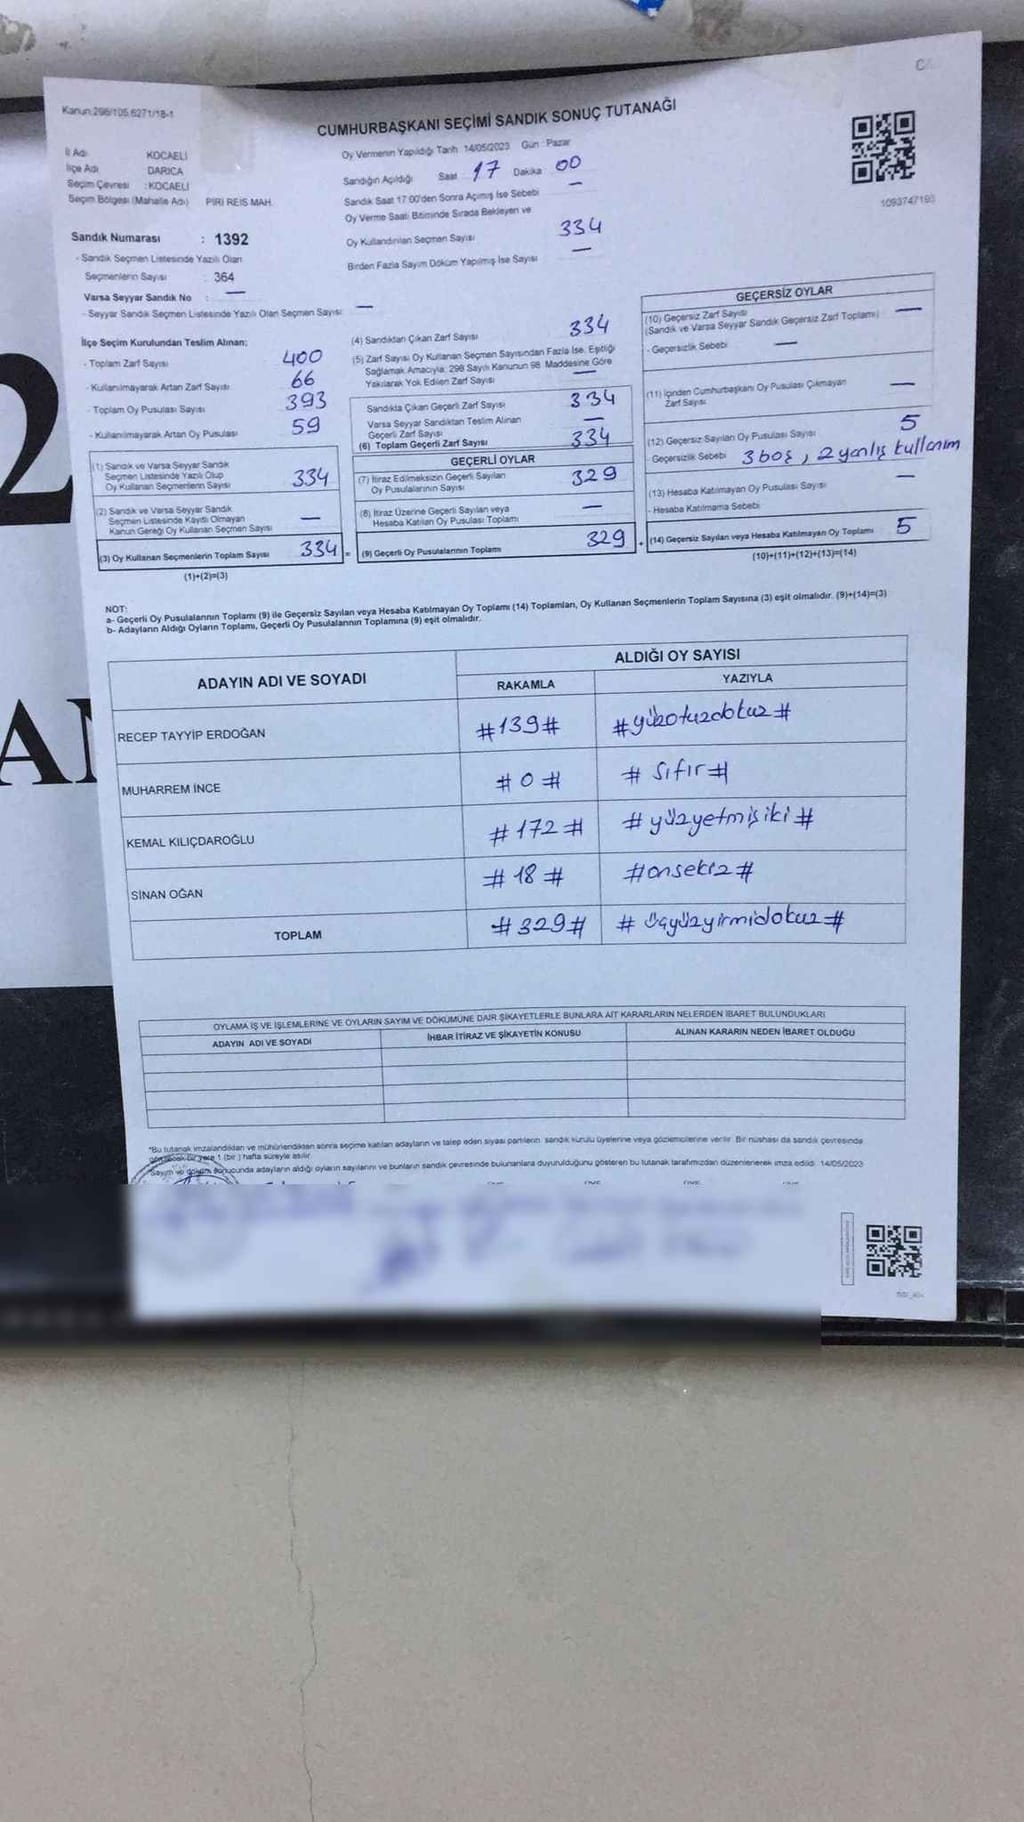 Kanun:298/105,6271/18-1
CUMHURBAŞKANI SEÇİMİ SANDIK SONUÇ TUTANAĞI
İl Adı KOCAELİ
İlçe Adı DARICA
Seçim Çevresi : KOCAELİ
Seçim Bölgesi (Mahalle Adı) PİRİ REİS MAH.
Oy Vermenin Yapıldığı Tarih 14/05/2023 Gün : Pazar
Sandığın Açıldığı Saat 17 Dakika 00
Sandık Saat 17:00'den Sonra Açımış İse Sebebi —
Oy Verme Saati Bitiminde Sırada Bekleyen ve
Oy Kullandırılan Seçmen Sayısı 334
Birden Fazla Sayım Döküm Yapılmış İse Sayısı —
Sandık Numarası : 1392
- Sandık Seçmen Listesinde Yazılı Olan
Seçmenlerin Sayısı : 364
Varsa Seyyar Sandık No : —
- Seyyar Sandık Seçmen Listesinde Yazılı Olan Seçmen Sayısı: —
İlçe Seçim Kurulundan Teslim Alınan;
- Toplam Zarf Sayısı 400
- Kullanılmayarak Artan Zarf Sayısı 66
- Toplam Oy Pusulası Sayısı 393
- Kullanılmayarak Artan Oy Pusulası 59
(1) Sandık ve Varsa Seyyar Sandık
Seçmen Listesinde Yazılı Olup
Oy Kullanan Seçmenlerin Sayısı 334
(2) Sandık ve Varsa Seyyar Sandık
Seçmen Listesinde Kayıtlı Olmayan
Kanun Gereği Oy Kullanan Seçmen Sayısı —
(3) Oy Kullanan Seçmenlerin Toplam Sayısı 334 =
(1)+(2)=(3)
(4) Sandıktan Çıkan Zarf Sayısı 334
(5) Zarf Sayısı Oy Kullanan Seçmen Sayısından Fazla İse, Eşitliği
Sağlamak Amacıyla; 298 Sayılı Kanunun 98. Maddesine Göre
Yakılarak Yok Edilen Zarf Sayısı —
Sandıkta Çıkan Geçerli Zarf Sayısı 334
Varsa Seyyar Sandıktan Teslim Alınan
Geçerli Zarf Sayısı —
(6) Toplam Geçerli Zarf Sayısı 334
GEÇERLİ OYLAR
(7) İtiraz Edilmeksizin Geçerli Sayılan
Oy Pusulalarının Sayısı 329
(8) İtiraz Üzerine Geçerli Sayılan veya
Hesaba Katılan Oy Pusulası Toplamı —
(9) Geçerli Oy Pusulalarının Toplamı 329 +
1093747193
GEÇERSİZ OYLAR
(10) Geçersiz Zarf Sayısı
(Sandık ve Varsa Seyyar Sandık Geçersiz Zarf Toplamı) —
- Geçersizlik Sebebi —
(11) İçinden Cumhurbaşkanı Oy Pusulası Çıkmayan
Zarf Sayısı —
(12) Geçersiz Sayılan Oy Pusulası Sayısı 5
- Geçersizlik Sebebi 3 boş, 2 yanlış kullanım
(13) Hesaba Katılmayan Oy Pusulası Sayısı —
- Hesaba Katılmama Sebebi
(14) Geçersiz Sayılan veya Hesaba Katılmayan Oy Toplamı 5
(10)+(11)+(12)+(13)=(14)
NOT:
a- Geçerli Oy Pusulalarının Toplamı (9) ile Geçersiz Sayılan veya Hesaba Katılmayan Oy Toplamı (14) Toplamları, Oy Kullanan Seçmenlerin Toplam Sayısına (3) eşit olmalıdır. (9)+(14)=(3)
b- Adayların Aldığı Oyların Toplamı, Geçerli Oy Pusulalarının Toplamına (9) eşit olmalıdır.
ADAYIN ADI VE SOYADI
ALDIĞI OY SAYISI
RAKAMLA YAZIYLA
RECEP TAYYİP ERDOĞAN #139# #yüzotuzdokuz#
MUHARREM İNCE #0# #sıfır#
KEMAL KILIÇDAROĞLU #172# #yüzyetmişiki#
SİNAN OĞAN #18# #onsekiz#
TOPLAM #329# #üçyüzyirmidokuz#
OYLAMA İŞ VE İŞLEMLERİNE VE OYLARIN SAYIM VE DÖKÜMÜNE DAİR ŞİKAYETLERLE BUNLARA AİT KARARLARIN NELERDEN İBARET BULUNDUKLARI
ADAYIN ADI VE SOYADI İHBAR İTİRAZ VE ŞİKAYETİN KONUSU ALINAN KARARIN NEDEN İBARET OLDUĞU
*Bu tutanak imzalandıktan ve mühürlendikten sonra seçime katılan adayların ve talep eden siyasi partilerin sandık kurulu üyelerine veya gözlemcilerine verilir. Bir nüshası da sandık çevresinde
görülecek bir yere 1 (bir) hafta süreyle asılır.
Sayım ve döküm sonucunda adayların aldığı oyların sayılarını ve bunların sandık çevresinde bulunanlara duyurulduğunu gösteren bu tutanak tarafımızdan düzenlenerek imza edildi. 14/05/2023
2
AN